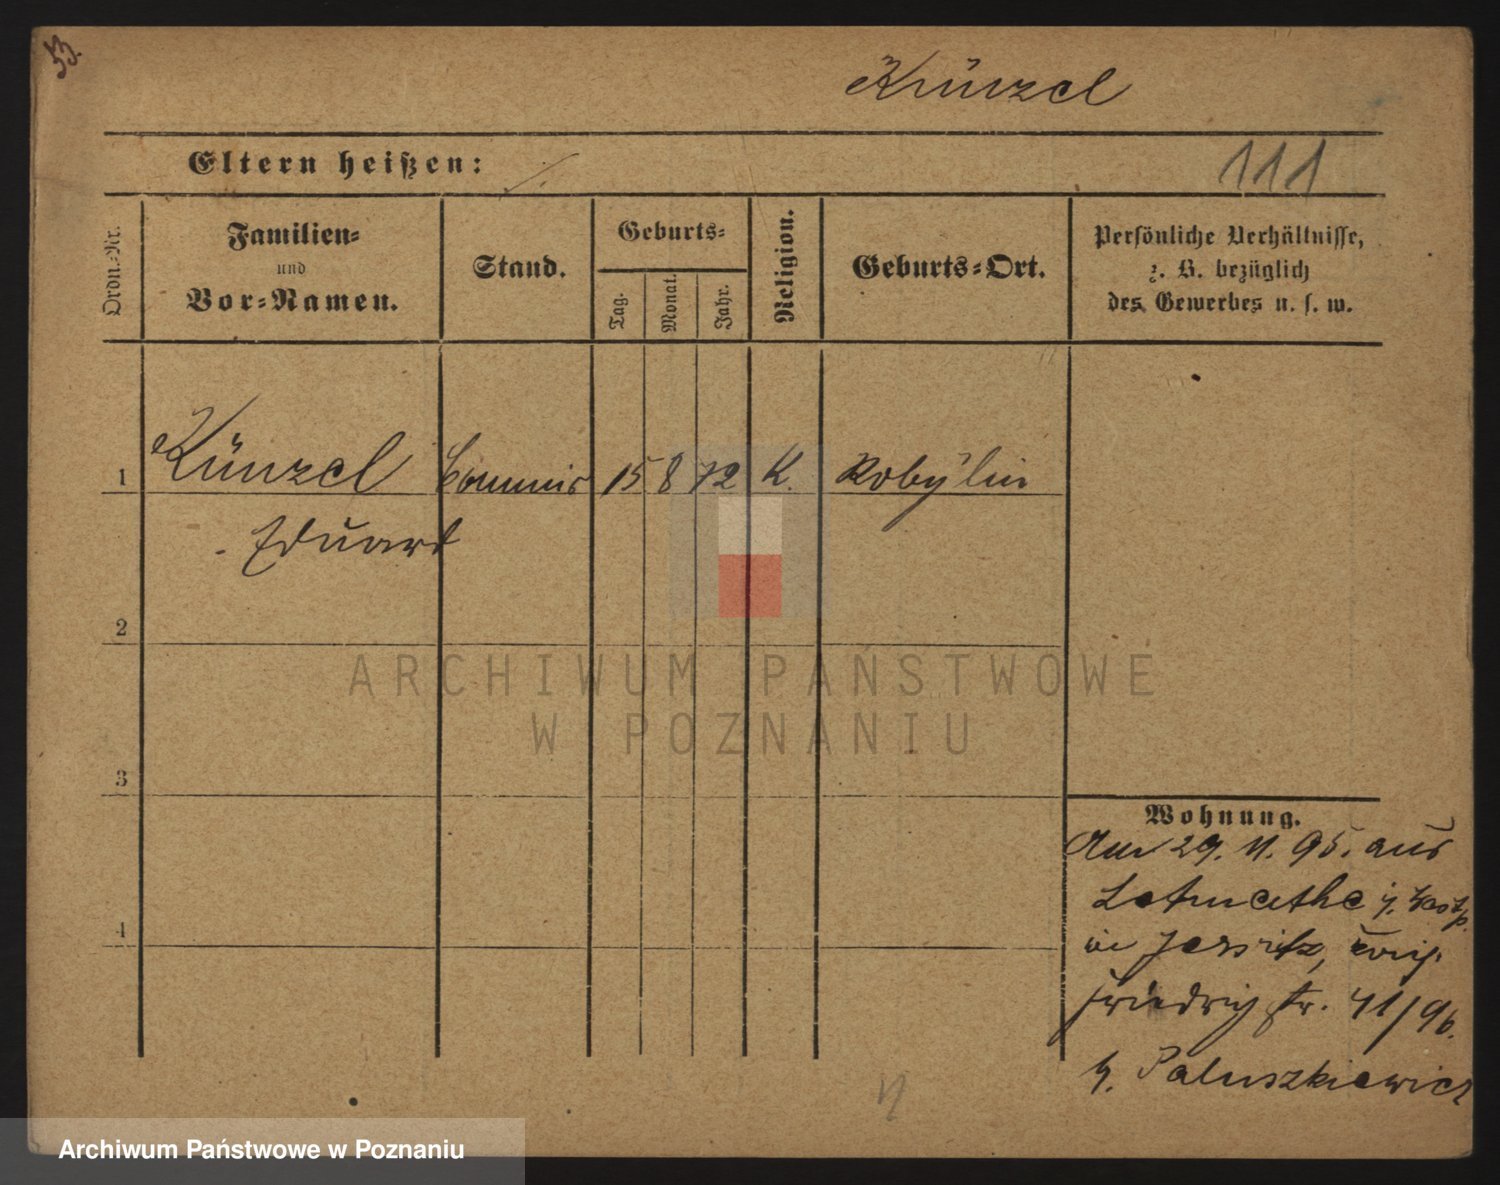 53.
Künzel
Eltern heißen: ./.
111
Ordn.-Nr.
Familien-
und
Vor-Namen.
Stand.
Geburts-
Tag.
Monat.
Jahr.
Religion.
Geburts-Ort.
Persönliche Verhältnisse,
z. B. bezüglich
des Gewerbes u. s. w.
1 Künzel Commis 15 8 72 K. Kobylin
Eduard
2
3
4
Wohnung.
Am 29. 11. 95. aus
Letmathe
in Jersitz,
Friedrichstr. 41/96.
b. Paluszkiewicz
ARCHIWUM PAŃSTWOWE
W POZNANIU
Archiwum Państwowe w Poznaniu